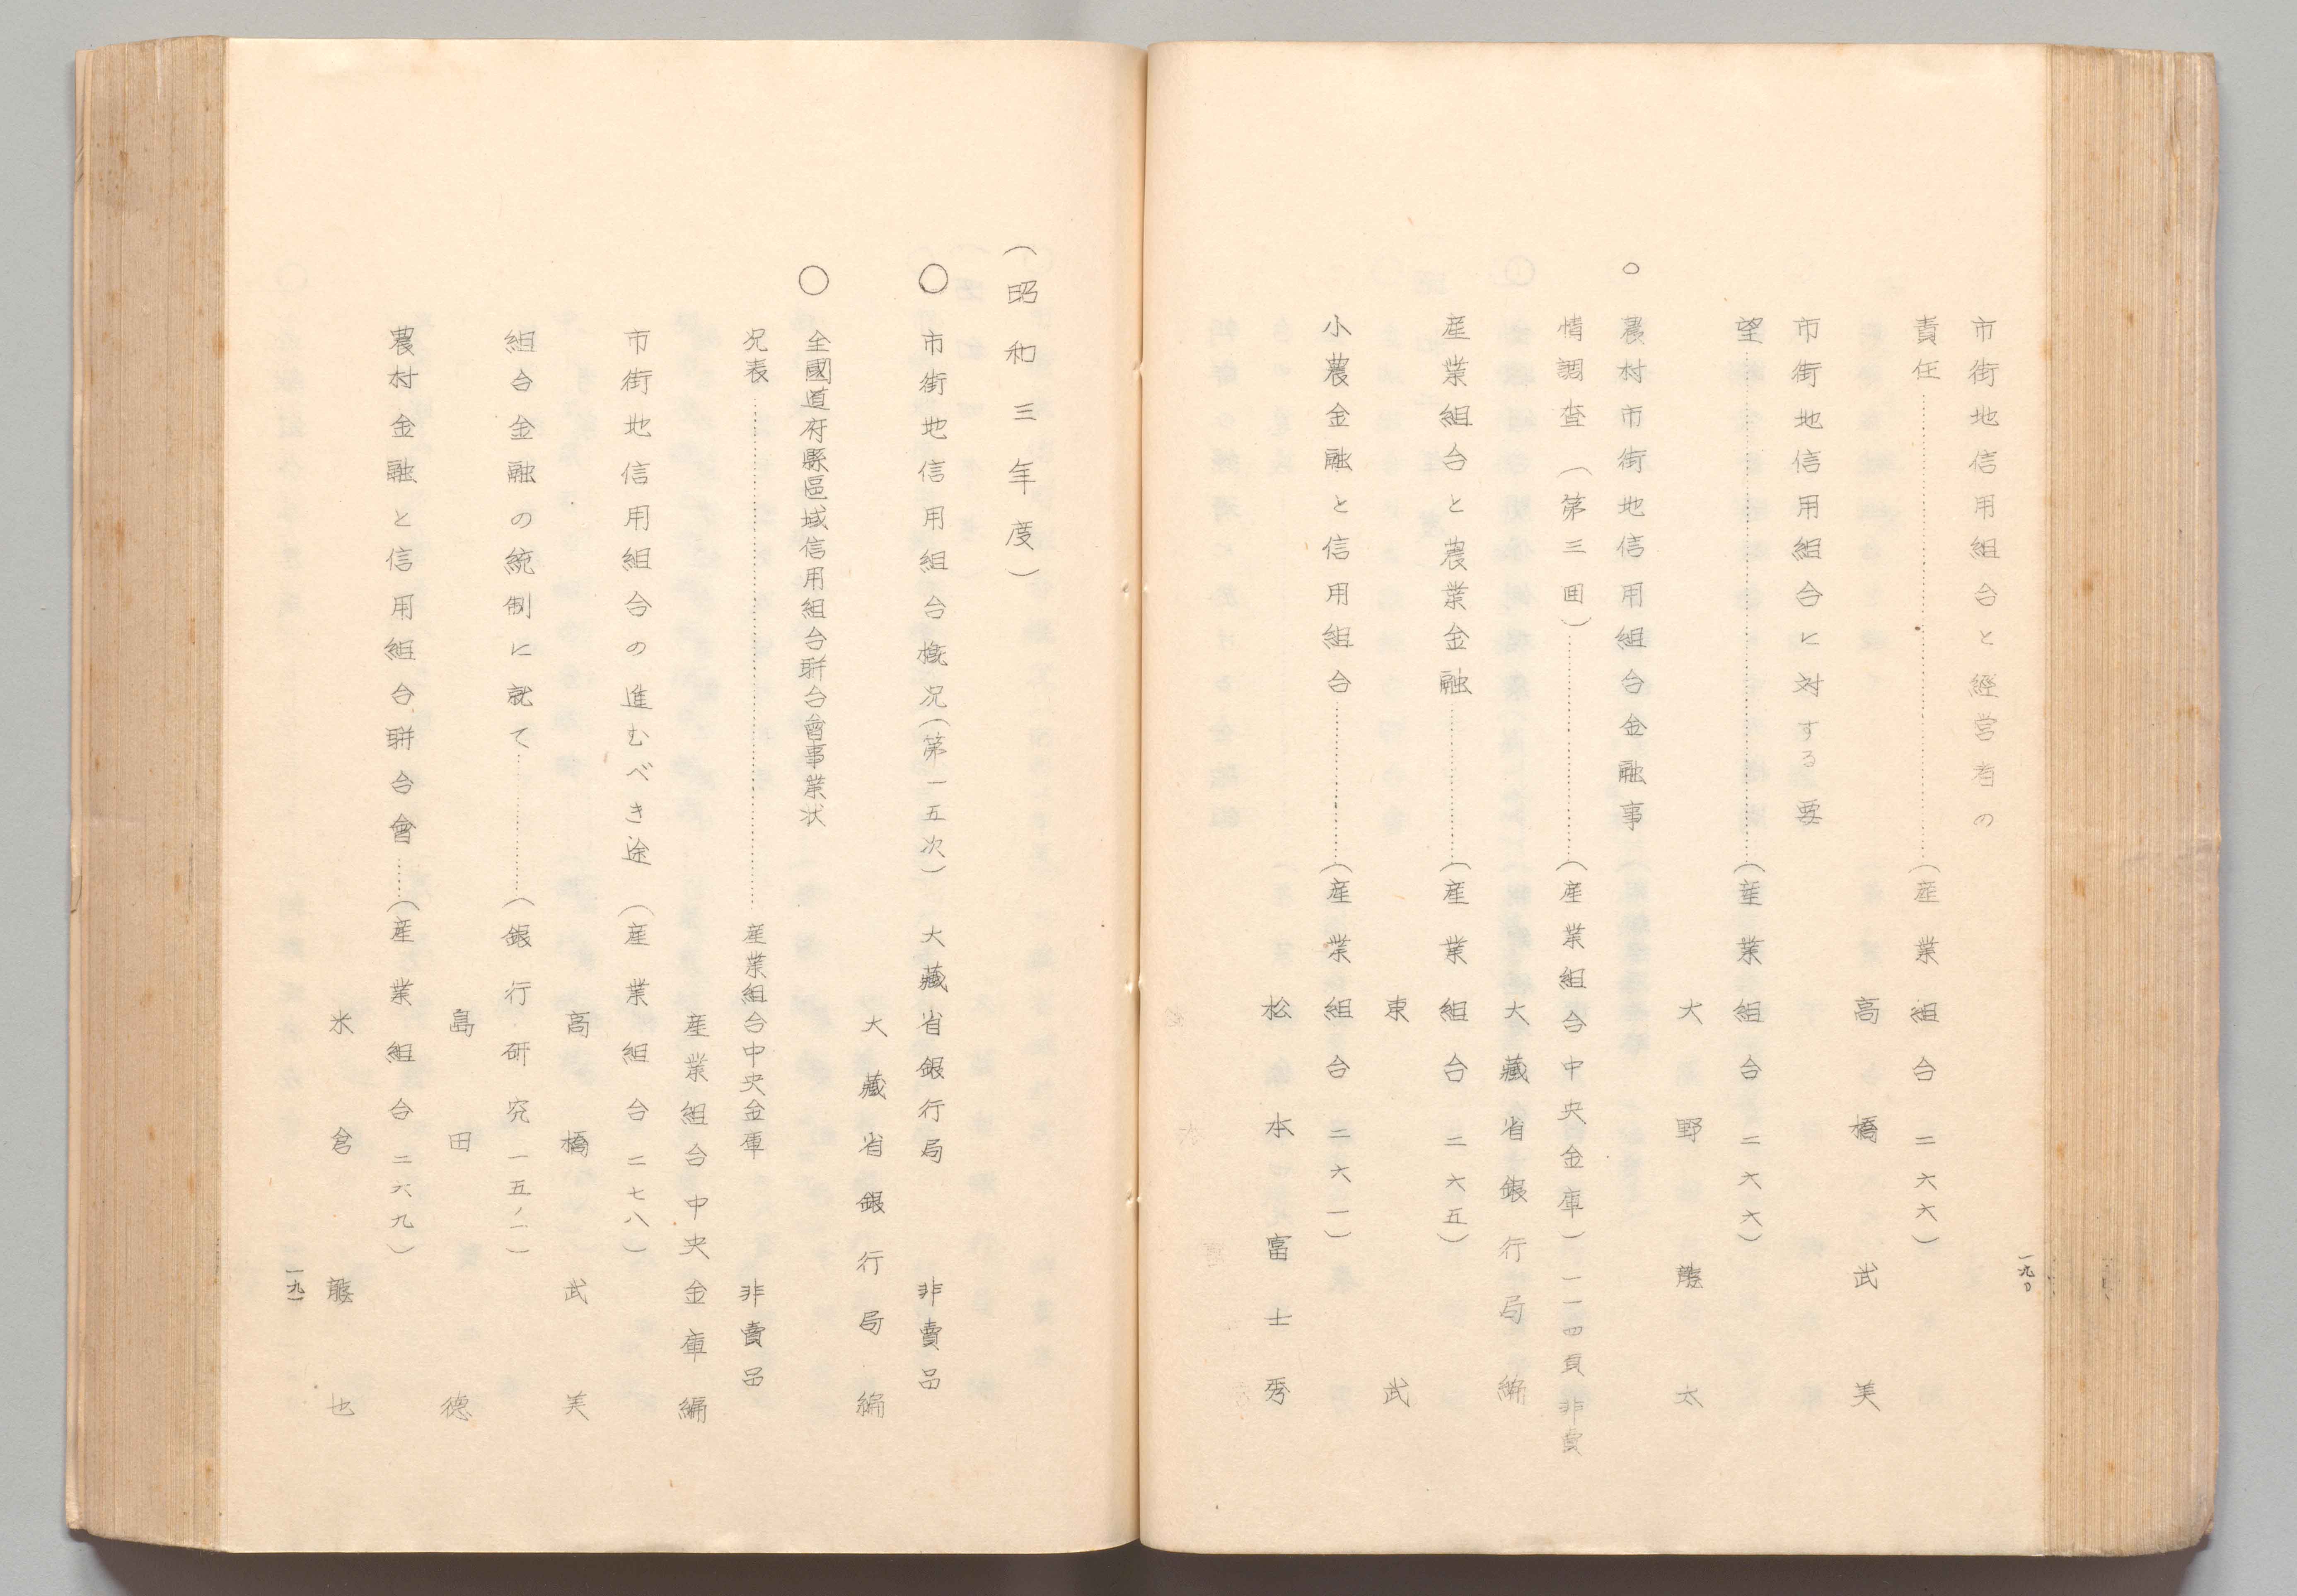 市街地信用組合と経営者の
責任……………………(産業組合 二六六)
高橋武美
市街地信用組合に対する要
望……………………(産業組合 二六六)
大野龍太
○農村市街地信用組合金融事
情調査(第三回)……………………(産業組合中央金庫)一一四頁非賣
大藏省銀行局編
産業組合と農業金融……………………(産業組合 二六五)
東武
小農金融と信用組合……………………(産業組合 二六一)
松本富士秀
一九〇
(昭和三年度)
○市街地信用組合槪況(第一五次) 大藏省銀行局 非賣品
大藏省銀行局編
○全國道府縣區域信用組合聯合會事業状
况表……………………産業組合中央金庫 非賣品
産業組合中央金庫編
市街地信用組合の進むべき途(産業組合 二七八)
高橋武美
組合金融の統制に就て……………………(銀行研究 一五ノ一)
島田德
農村金融と信用組合聯合會……(産業組合 二六九)
米倉龍也
一九一